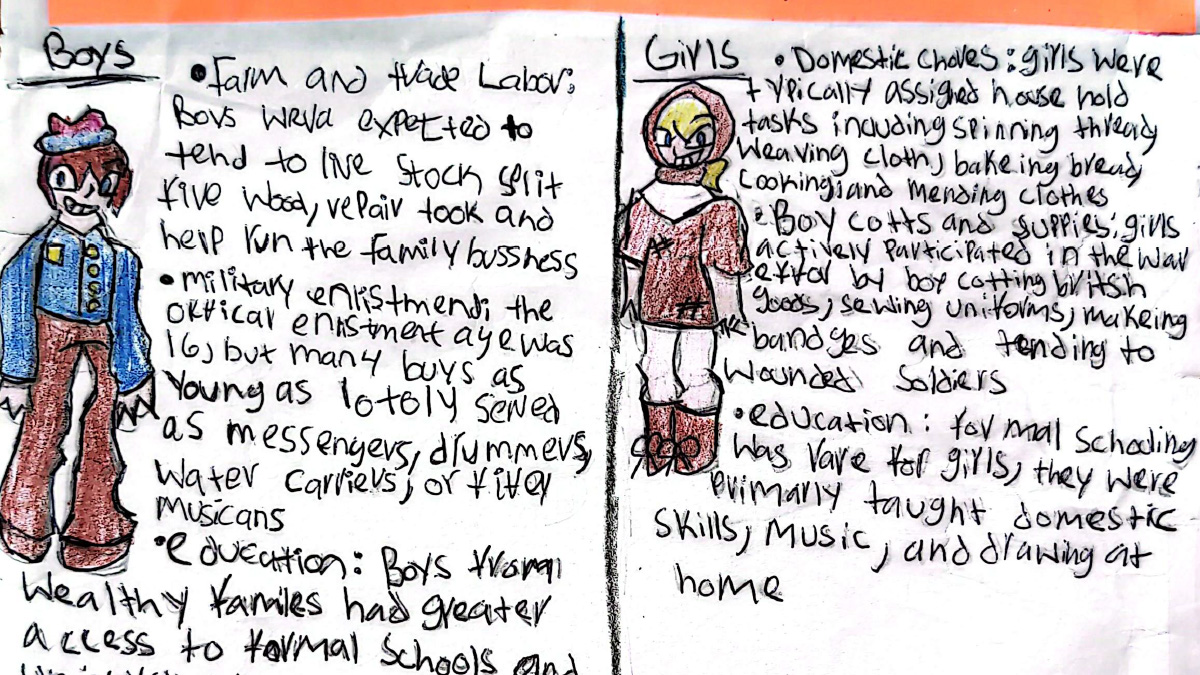 Boys
• Farm and trade Labor:
Boys were expected to
tend to live stock split
fire wood, repair took and
help run the family bussness
• military enlistmend; the
offical enlistment aye was
16, but many buys as
Young as 10 to ly served
as messengers, drummers,
water carriers, or fifer
musicans
• education: Boys from
Wealthy familes had greater
access to formal Schools and
Girls
• Domestic chores: girls were
typically assigned house hold
tasks including spinning thread
weaving cloth, bakeing bread,
cooking, and mending clothes
• Boy cotts and supplies: girls
actively participated in the war
effor by boy cotting british
goods, sewing uniforms, makeing
bandges and tending to
Wounded Soldiers
• education: formal Schooling
Was rare for girls, they were
primarly taught domestic
skills, Music, and drawing at
home